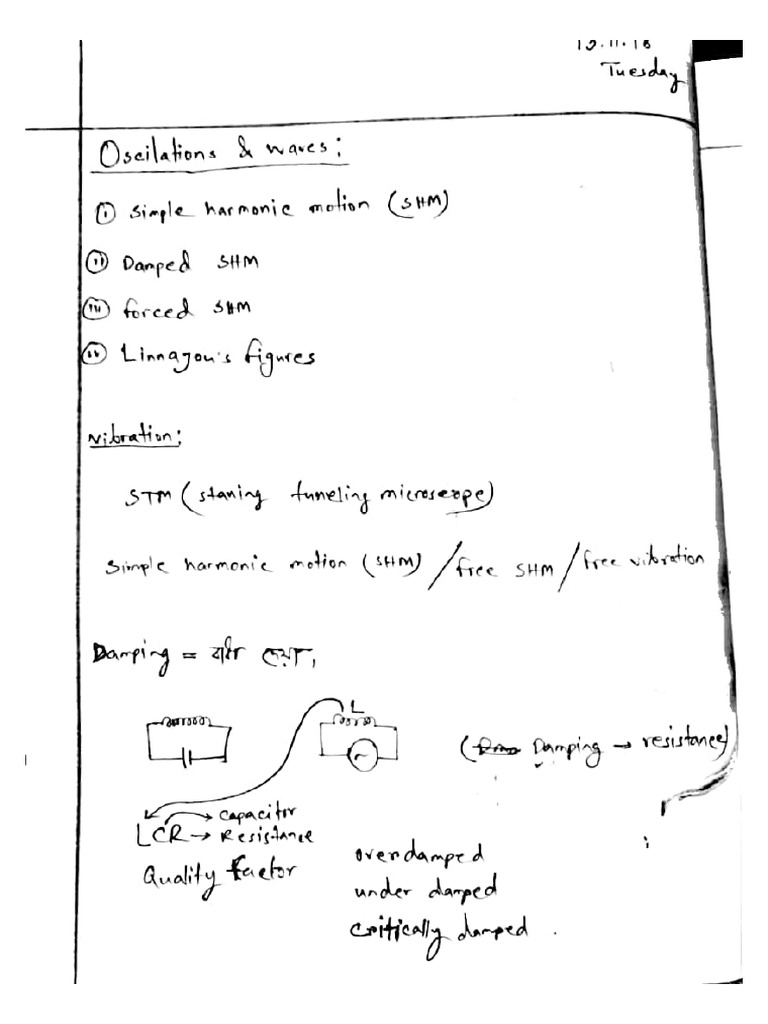 13.11.18
Tuesday
Oscilations & waves:
i simple harmonic motion (SHM)
ii Damped SHM
iii forced SHM
iv Linnajou's figures
vibration:
STM (staning tunneling microscope)
simple harmonic motion (SHM) / free SHM / free vibration
Damping = বাধা দেয়া,
L
(Damping → resistance)
→ capacitor
LCR → Resistance
Quality factor
overdamped
under damped
critically damped.